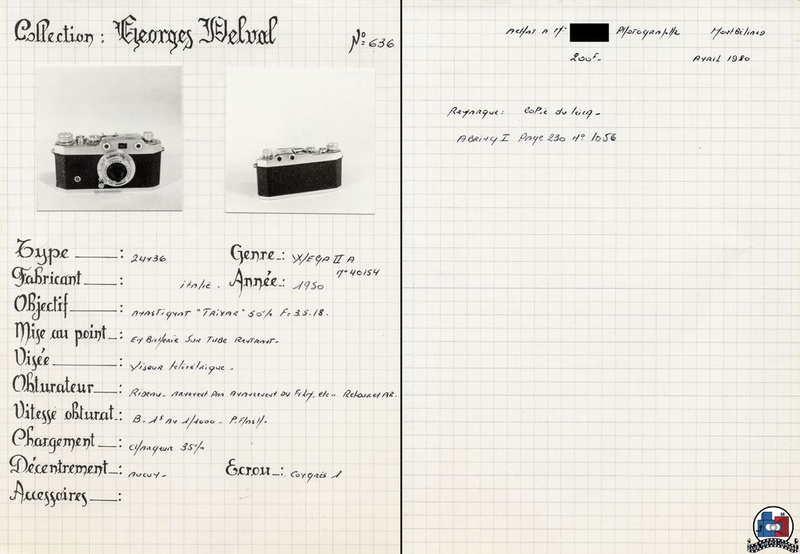 Collection : Georges Delval
N° 636
Type : 24x36
Genre : WEGA II A
n° 40154
Fabricant : italie.
Année : 1950
Objectif : Anastigmat "TRIXAR" 50% F: 3.5.18.
Mise au point : En Batterie Sur Tube Rentrant.
Visée : Viseur télémétrique.
Obturateur : Rideau. Armement Par Avancement Du Film. etc. Retour et AR.
Vitesse obturat. : B. 1s Au 1/1000 - P. Flash.
Chargement : Chargeur 35%
Décentrement : Aucun.
Ecrou : Congrès 1
Accessoires :
Achat a Mr Photographe Montbéliard
200F. Avril 1980
Remarque : Copie du Leica.
ABRING I Page 230 n° 1056